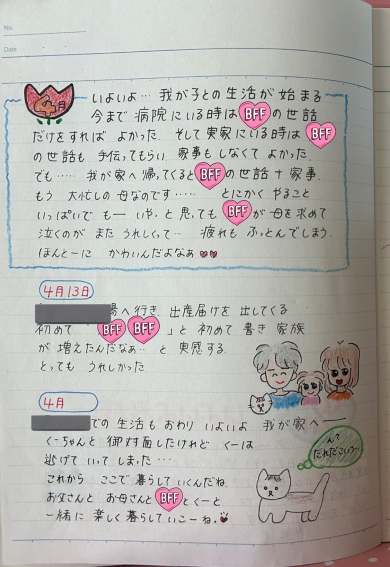 No.
Date
4月
いよいよ… 我が子との生活が始まる
今まで病院にいる時は BFF の世話
だけをすれば よかった. そして実家にいる時は BFF
の世話も 手伝ってもらい 家事もしなくてよかった.
でも…… 我が家へ帰ってくると BFF の世話 + 家事.
もう 大忙しの母なのです…… とにかく やること
いっぱいで もー いや. と思っても BFF が母を求めて
泣くのが また うれしくって… 疲れも ふっとんでしまう.
ほんとーに かわいんだよなぁ
4月13日
場へ行き. 出産届けを 出してくる
初めて BFF BFF 」と 初めて 書き 家族
が 増えたんだなぁ… と 実感する.
とっても うれしかった
4月
での 生活も おわり いよいよ 我が家へ―
くーちゃんと 御対面したけれど くーは
逃げて いって しまった…
これから ここで 暮らして いくんだね.
お父さんと お母さんと BFF とくーと
一緒に 楽しく 暮らして いこーね.
んて
だれだこいつ〜